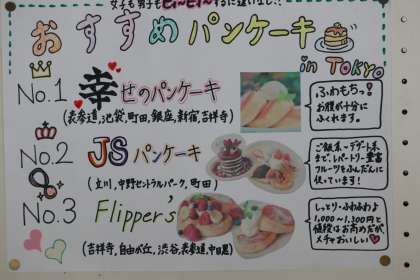 女子も男子も
おすすめパンケーキ
in TOKYO
No.1 幸せのパンケーキ
(表参道,池袋,町田,銀座,新宿,吉祥寺)
ふわもちっ!
お腹が十分に
ふくれます。
No.2 JSパンケーキ
(立川,中野セントラルパーク,町田)
ご飯系〜デザート系
まで、レパートリー豊富
フルーツをふんだんに
使っています!
No.3 Flipper's
(吉祥寺,自由が丘,渋谷,表参道,中目黒)
しっとり・ふわふわよ
1,000〜1,300円と
値段はお高めだが
メチャおいしい♡